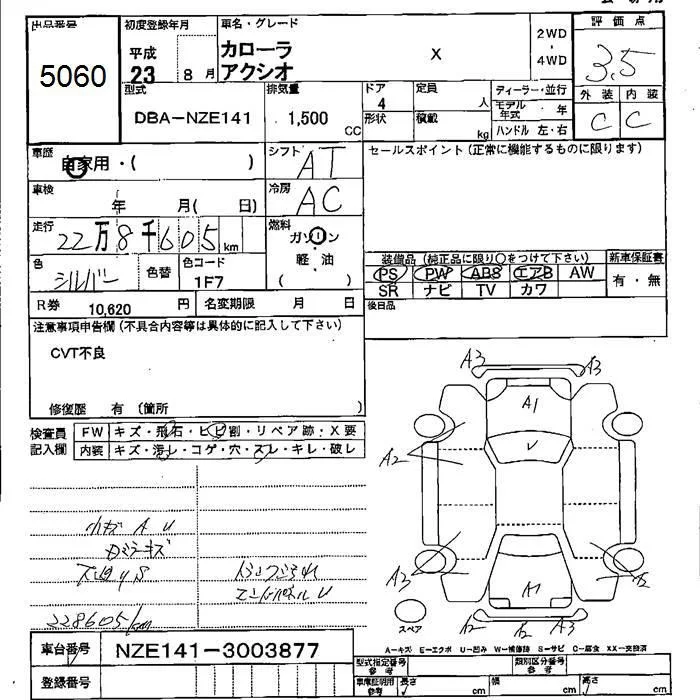 出品番号
5060
初度登録年月
平成
23 8月
車名・グレード
カローラ
アクシオ
X
2WD
4WD
評価点
3.5
外装 内装
C C
型式
DBA-NZE141
排気量
1,500
CC
ドア
4
定員
人
形状
積載
kg
ディーラー・並行
モデル年式 ・ 年
ハンドル 左・右
車歴
自家用・( )
シフト
AT
セールスポイント(正常に機能するものに限ります)
車検
年 月( 日)
冷房
AC
走行
22万8千605km
燃料
ガソリン
軽・油
( )
色
シルバー
色替
色コード
1F7
装備品(純正品に限り○をつけて下さい)
新車保証書
PS PW ABS エアB AW
有・無
SR ナビ TV カワ
R券
10,620 円
名変期限 月 日
後日品
注意事項申告欄(不具合内容等は具体的に記入して下さい)
CVT不良
修復歴 有 (箇所 )
検査員
記入欄
FW キズ・飛石・ヒビ割・リペア跡・X要
内装 キズ・汚レ・コゲ・穴・スレ・キレ・破レ
小キズ A U
228605km
エンドパネルU
A3 A3
A1
A2
U
A3
A2
A1
A2 A2 A2
スペア
A-キズ E-エクボ U-凹み W-補修跡 S-サビ C-腐食 XX-交換済
車台番号
NZE141-3003877
登録番号
型式指定番号
参考
類別区分番号
参考
車庫証明用
参考
長さ cm
幅 cm
高さ cm